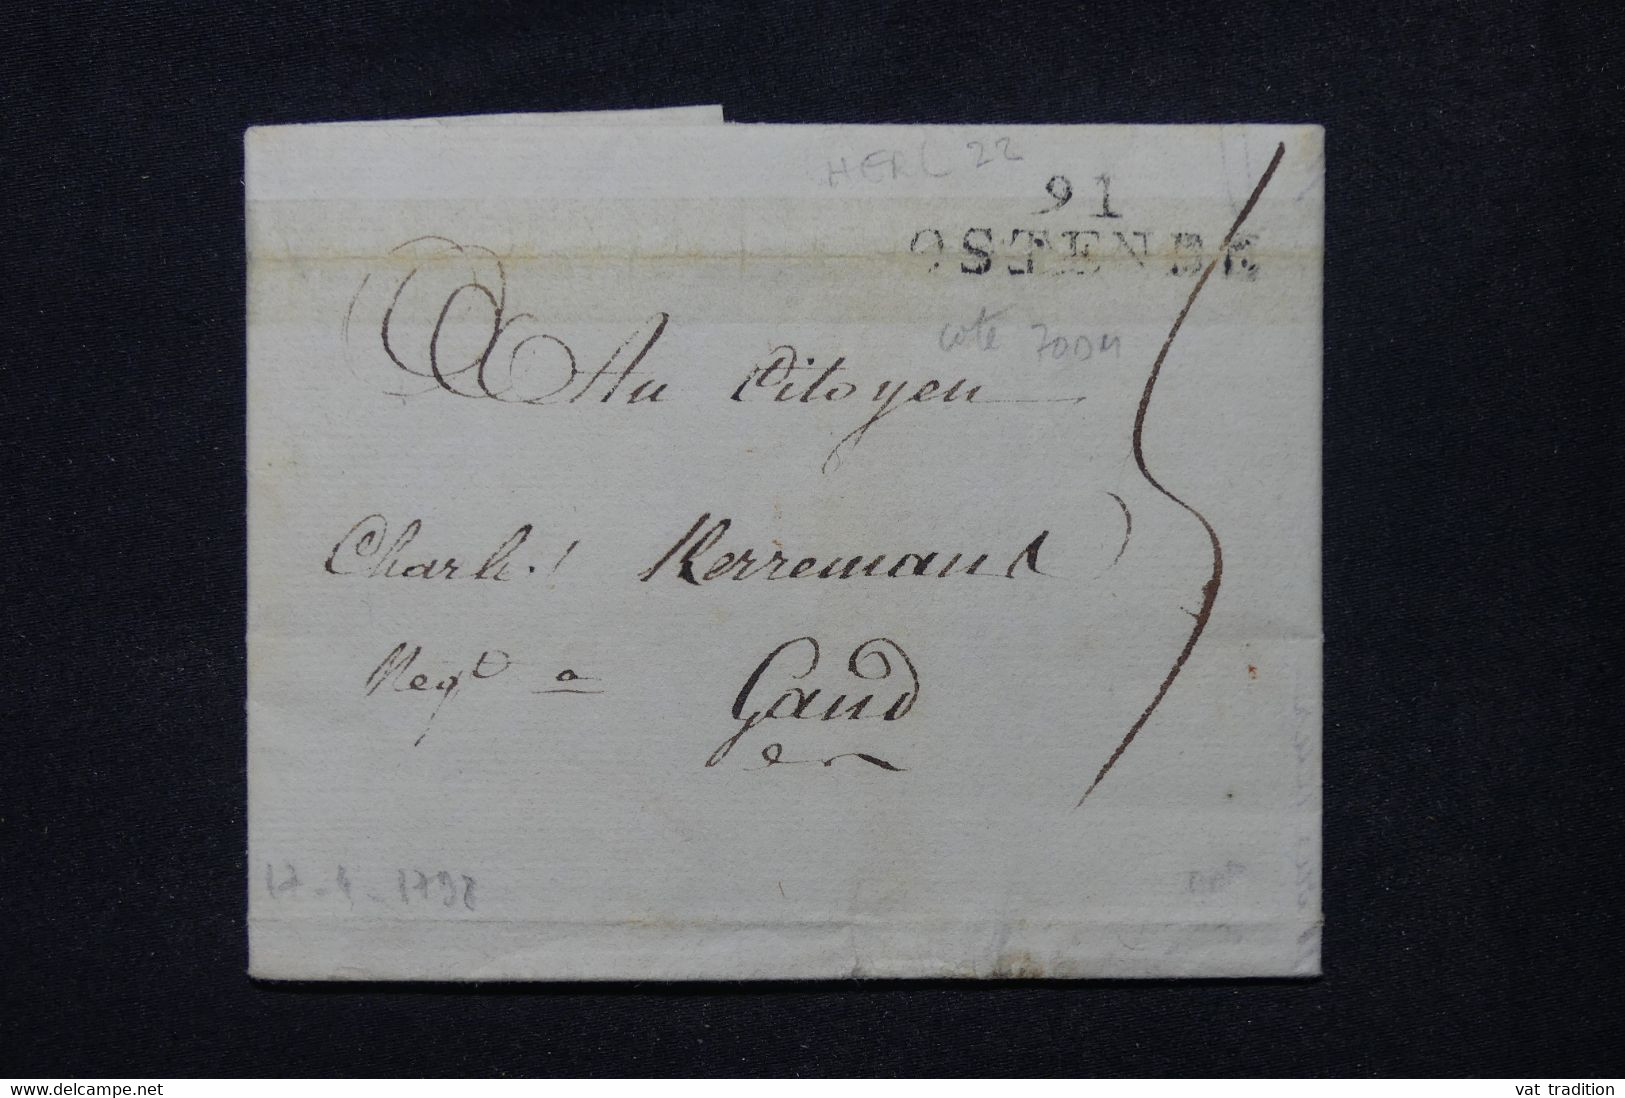 HERL 22
91
OSTENDE
cote 700
Au Citoyen
Charles Kerremans
Negt a Gand
17-4-1798
www.delcampe.net
vat tradition